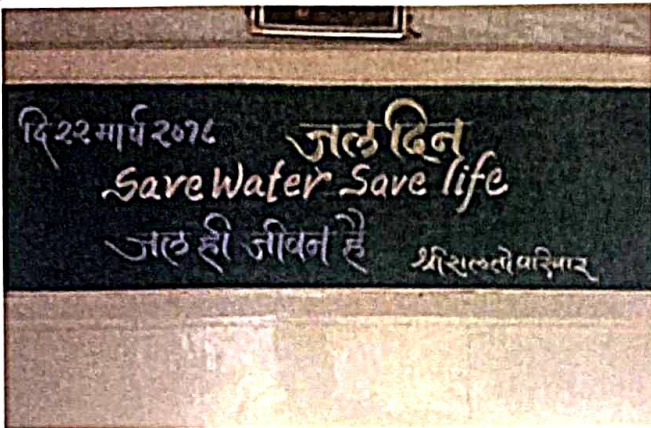 दि २२ मार्च २०१८ जल दिन
Save Water Save life
जल ही जीवन है